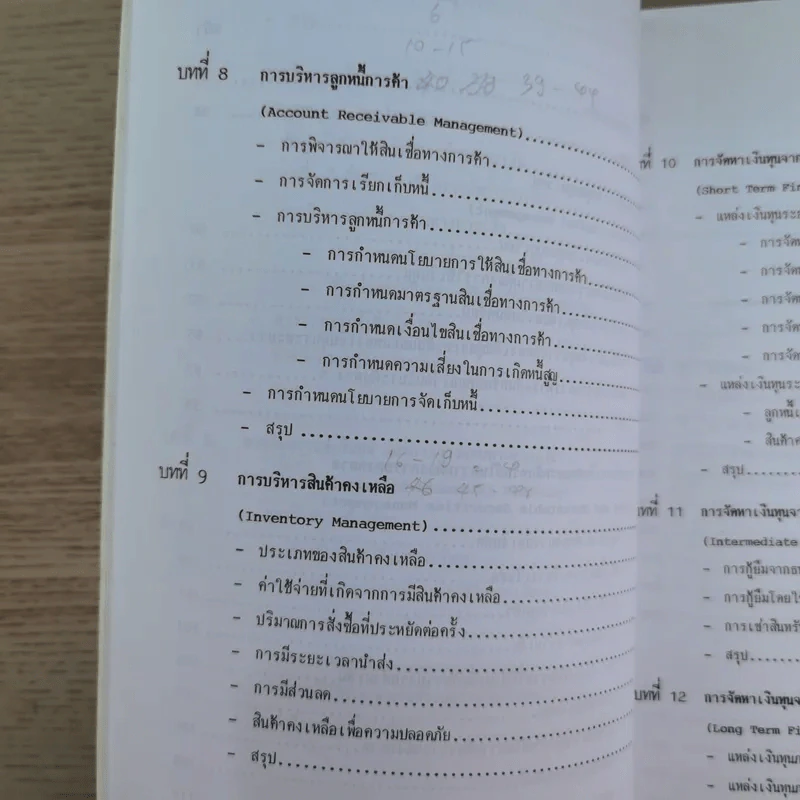 6
10-15
บทที่ 8 การบริหารลูกหนี้การค้า 39-
(Account Receivable Management)
- การพิจารณาให้สินเชื่อทางการค้า
- การจัดการเรียกเก็บหนี้
- การบริหารลูกหนี้การค้า
- การกำหนดนโยบายการให้สินเชื่อทางการค้า
- การกำหนดมาตรฐานสินเชื่อทางการค้า
- การกำหนดเงื่อนไขสินเชื่อทางการค้า
- การกำหนดความเสี่ยงในการเกิดหนี้สูญ
- การกำหนดนโยบายการจัดเก็บหนี้
- สรุป
16-19
บทที่ 9 การบริหารสินค้าคงเหลือ
(Inventory Management)
- ประเภทของสินค้าคงเหลือ
- ค่าใช้จ่ายที่เกิดจากการมีสินค้าคงเหลือ
- ปริมาณการสั่งซื้อที่ประหยัดต่อครั้ง
- การมีระยะเวลานำส่ง
- การมีส่วนลด
- สินค้าคงเหลือเพื่อความปลอดภัย
- สรุป
ที่ 10 การจัดหาเงินทุนจาก
(Short Term Fi
- แหล่งเงินทุนระ
- การจัด
- การจัด
- การจัด
- การจัด
- การจัด
- แหล่งเงินทุนระ
- ลูกหนี้
- สินค้าค
- สรุป
ทที่ 11 การจัดหาเงินทุนจา
(Intermediate
- การกู้ยืมจากธ
- การกู้ยืมโดยใ
- การเช่าสินทรั
- สรุป
บทที่ 12 การจัดหาเงินทุนจ
(Long Term Fi
- แหล่งเงินทุน
- แหล่งเงินทุน